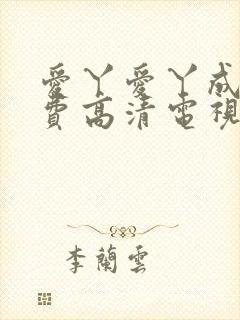 愛丫愛丫成
費高清電視
李蘭雲